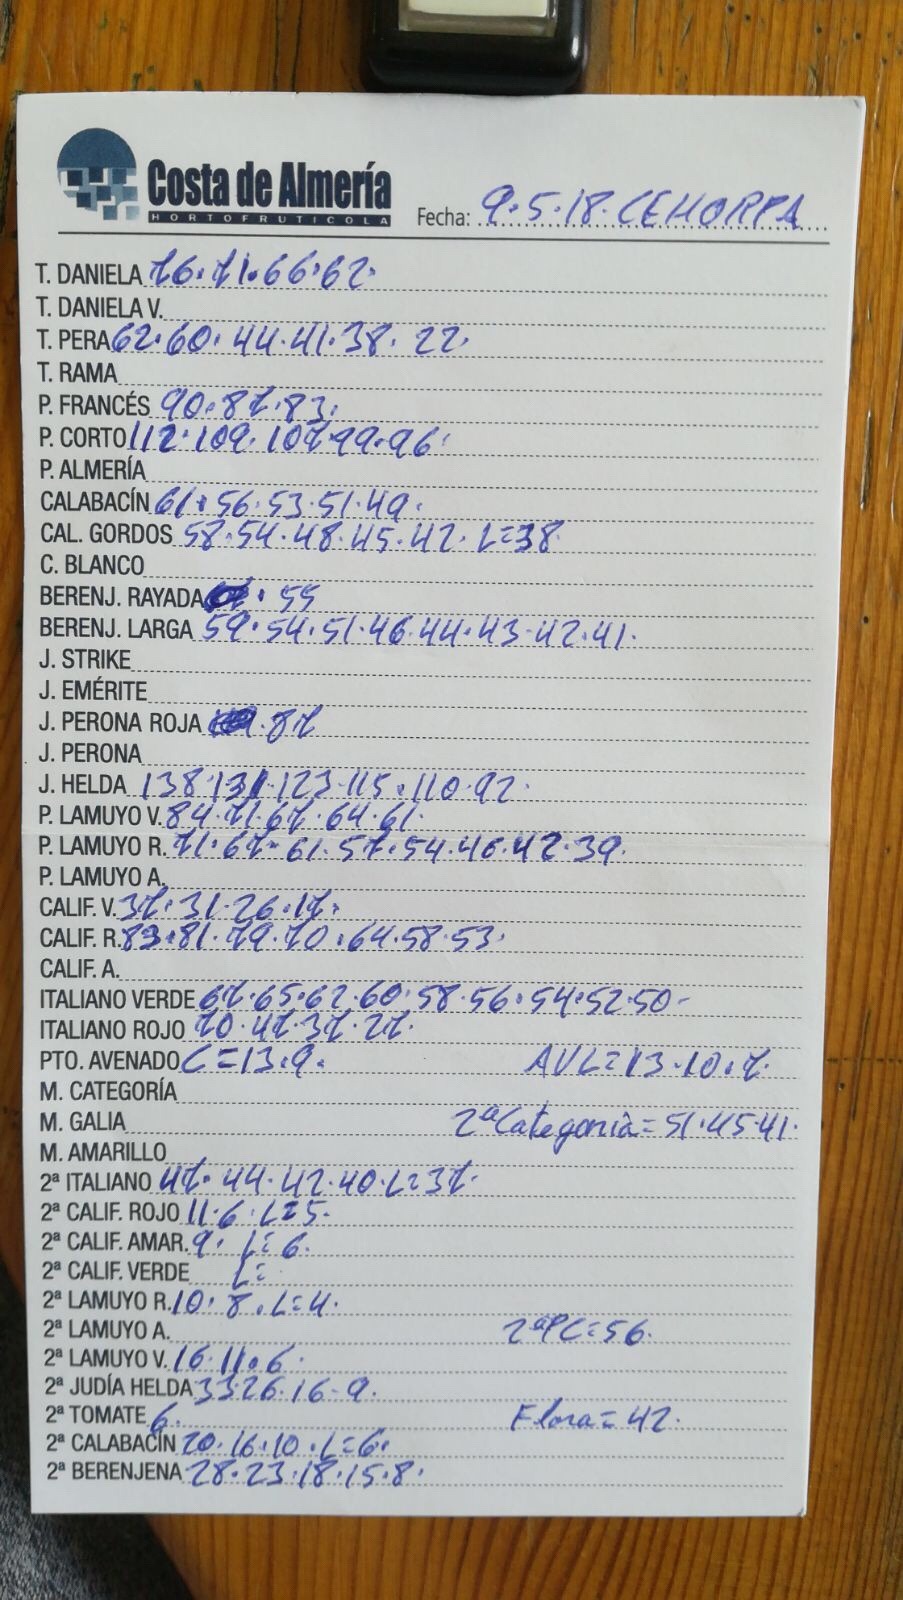 Costa de Almería
HORTOFRUTICOLA
Fecha: 9.5.18. CEHORPA
T. DANIELA 76.71.66.62.
T. DANIELA V.
T. PERA 62.60. 44.41.38. 22.
T. RAMA
P. FRANCÉS 90.87.83.
P. CORTO 112.109.107.99.96.
P. ALMERÍA
CALABACÍN 61.56.53.51.49.
CAL. GORDOS 58.54.48.45.42. L=38
C. BLANCO
BERENJ. RAYADA . 55
BERENJ. LARGA 59.54.51.46.44.43.42.41.
J. STRIKE
J. EMÉRITE
J. PERONA ROJA . 87
J. PERONA
J. HELDA 138.131.123.115.110.92.
P. LAMUYO V. 84.71.67.64.61.
P. LAMUYO R. 71.67.61.57.54.46.42.39.
P. LAMUYO A.
CALIF. V. 37.31.26.17.
CALIF. R. 83.81.79.70.64.58.53.
CALIF. A.
ITALIANO VERDE 67.65.62.60.58.56.54.52.50-
ITALIANO ROJO 70.47.37.27.
PTO. AVENADO C=13.9. AVL=13.10.7.
M. CATEGORÍA
M. GALIA 2ªCategoria=51.45.41.
M. AMARILLO
2ª ITALIANO 47.44.42.40.L=37.
2ª CALIF. ROJO 11.6. L=5.
2ª CALIF. AMAR. 9. L=6.
2ª CALIF. VERDE L=
2ª LAMUYO R. 10.8.L=4.
2ª LAMUYO A. 2ªPC=56.
2ª LAMUYO V. 16.11.6.
2ª JUDÍA HELDA 33.26.16-9.
2ª TOMATE 6. Flora=42.
2ª CALABACÍN 20.16.10.L=6.
2ª BERENJENA 28.23.18.15.8.